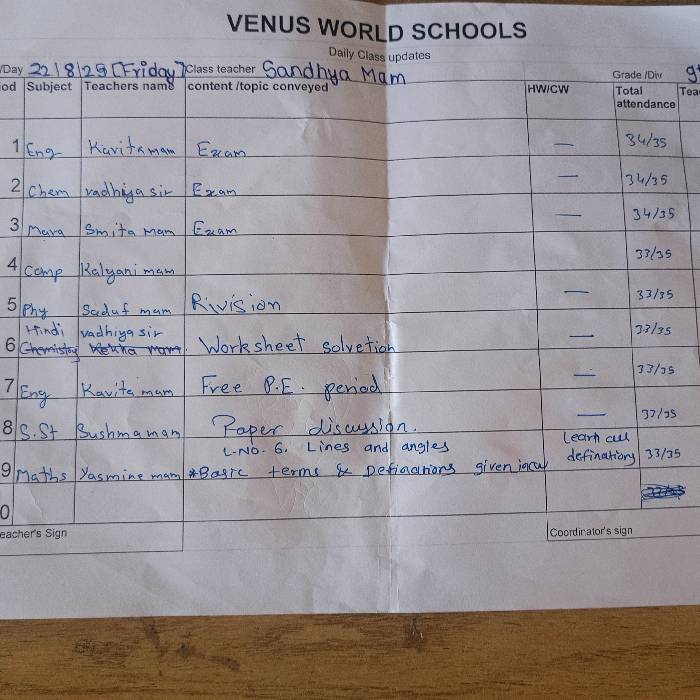 VENUS WORLD SCHOOLS
Daily Class updates
/Day 22/8/25 [Friday] Class teacher Sandhya Mam Grade /Div 9t
iod Subject Teachers name content /topic conveyed HW/CW Total attendance Tea
1 Eng Kavita mam Exam — 34/35
2 Chem vadhiya sir Exam — 34/35
3 Mara Smita Mam Exam — 34/35
4 Comp Kalyani mam 33/35
5 Phy Saduf mam Rivision — 33/35
6 Hindi vadhiya sir Worksheet solvetion — 33/35
Chemistry Rekha mam.
7 Eng Kavita mam Free P.E. period — 33/35
8 S.St Sushma mam Paper discussion. — 33/35
L-NO. 6. Lines and angles Learn all
9 Maths Yasmine mam *Basic terms & Definations given definations 33/35
0
eacher's Sign Coordirator's sign